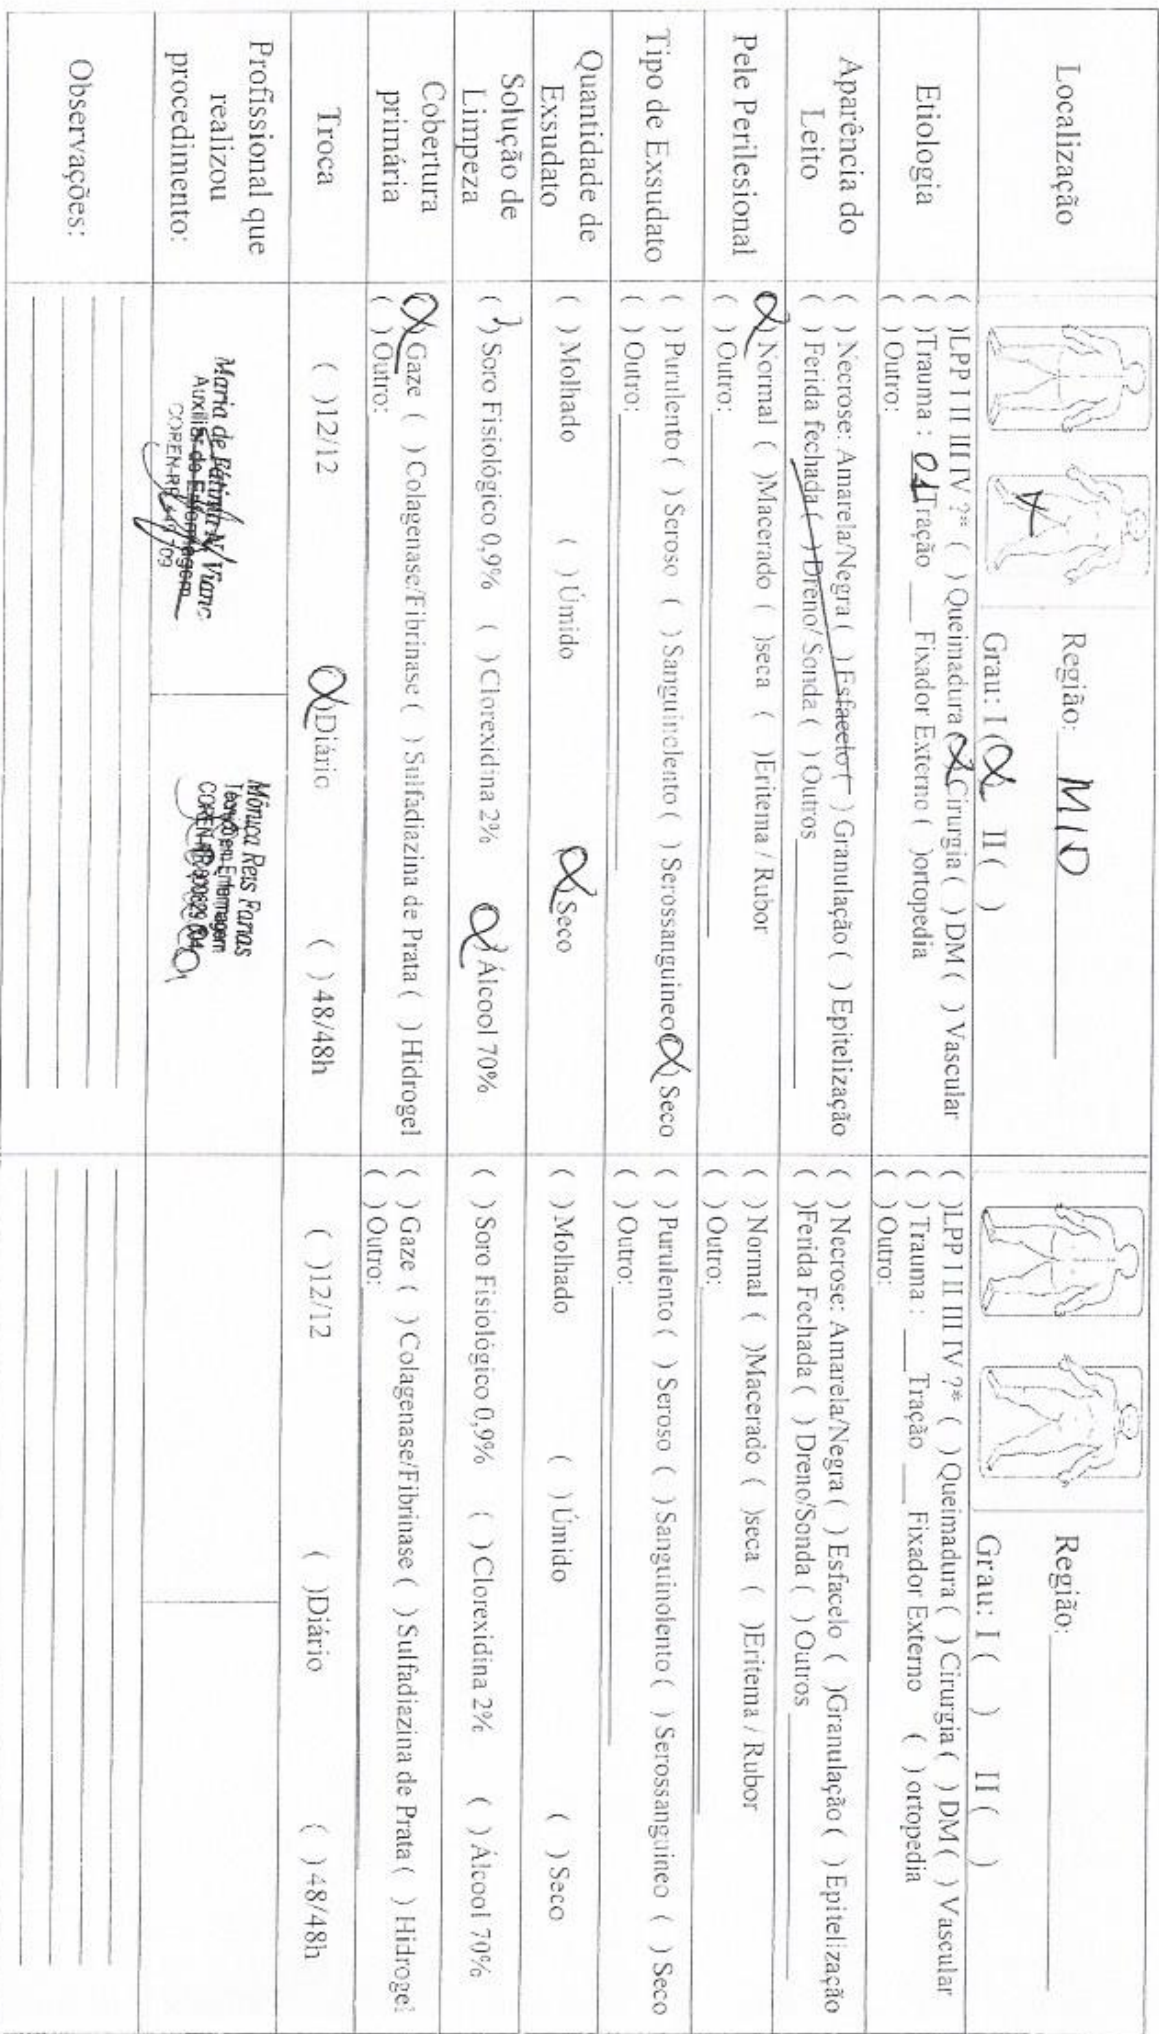 Localização
Região: MID
Grau: I (X) II ( )
Região:
Grau: I ( ) II ( )
Etiologia
( )LPP I II III IV ?* ( ) Queimadura (X)Cirurgia ( ) DM ( ) Vascular
( ) Trauma : 01 Tração ___ Fixador Externo ( )ortopedia
( ) Outro:
( )LPP I II III IV ?* ( ) Queimadura ( ) Cirurgia ( ) DM ( ) Vascular
( ) Trauma : ___ Tração ___ Fixador Externo ( ) ortopedia
( ) Outro:
Aparência do
Leito
( ) Necrose: Amarela/Negra ( ) Esfacelo ( ) Granulação ( ) Epitelização
( ) Ferida fechada ( ) Dreno/ Sonda ( ) Outros
( ) Necrose: Amarela/Negra ( ) Esfacelo ( )Granulação ( ) Epitelização
( )Ferida Fechada ( ) Dreno/Sonda ( ) Outros
Pele Perilesional
(X) Normal ( )Macerado ( )seca ( )Eritema / Rubor
( ) Outro:
( ) Normal ( )Macerado ( )seca ( )Eritema / Rubor
( ) Outro:
Tipo de Exsudato
( ) Purulento ( ) Seroso ( ) Sanguinolento ( ) Serossanguineo (X) Seco
( ) Outro:
( ) Purulento ( ) Seroso ( ) Sanguinolento ( ) Serossanguineo ( ) Seco
( ) Outro:
Quantidade de
Exsudato
( ) Molhado ( ) Úmido (X) Seco
( ) Molhado ( ) Úmido ( ) Seco
Solução de
Limpeza
( ) Soro Fisiológico 0,9% ( ) Clorexidina 2% (X) Álcool 70%
( ) Soro Fisiológico 0,9% ( ) Clorexidina 2% ( ) Álcool 70%
Cobertura
primária
(X) Gaze ( ) Colagenase/Fibrinase ( ) Sulfadiazina de Prata ( ) Hidrogel
( ) Outro:
( ) Gaze ( ) Colagenase/Fibrinase ( ) Sulfadiazina de Prata ( ) Hidrogel
( ) Outro:
Troca
( )12/12 (X)Diário ( ) 48/48h
( )12/12 ( )Diário ( ) 48/48h
Profissional que
realizou
procedimento:
Maria de Fátima N. Viana
Auxiliar de Enfermagem
COREN-RR
Mônica Reis Farias
Técnico em Enfermagem
COREN-RR
Observações: